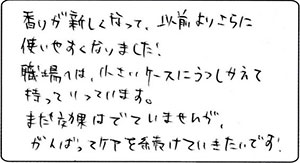 香りが新しくなって、以前よりさらに
使いやすくなりました!
職場へは、小さいケースにうつしかえて
持っていっています。
まだ効果はでていませんが、
がんばってケアを続けていきたいです!